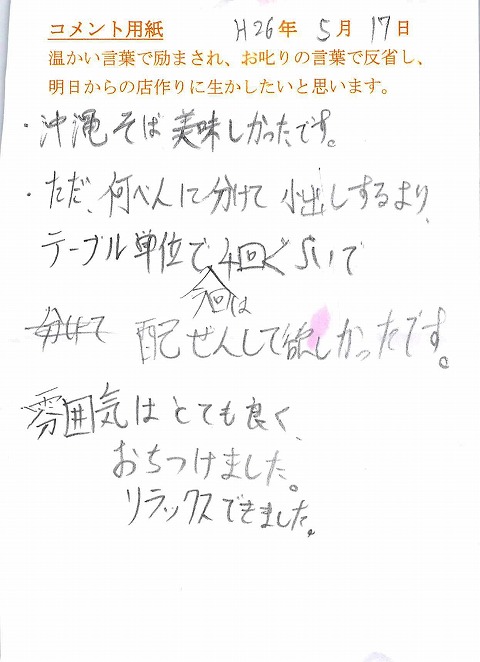 コメント用紙 H26年 5月 17日
温かい言葉で励まされ、お叱りの言葉で反省し、
明日からの店作りに生かしたいと思います。
・沖縄そば 美味しかったです。
・ただ、何べんに分けて 小出しするより、
テーブル単位で4回ぐらいで
今回は
分けて 配ぜんして欲しかったです。
雰囲気はとても良く、
おちつけました。
リラックスできました。